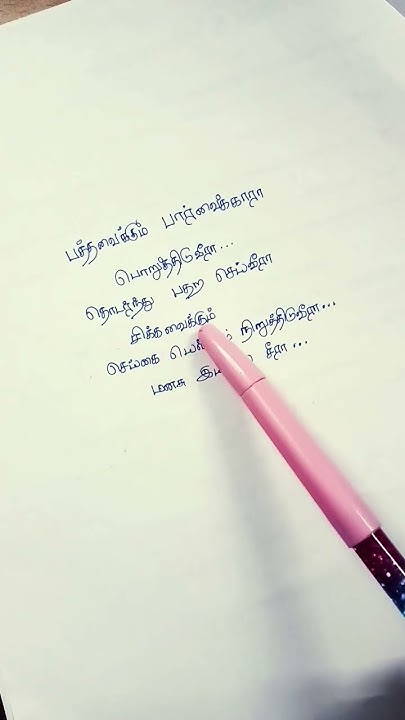 பத்தவைக்கும் பார்வைக்காரா
பொறுத்திடுவீரா...
தொடர்ந்து பதற செய்வீரா
சிக்கவைக்கும்
செய்கை நிறுத்திடுவீரா...
மனசு சீரா...